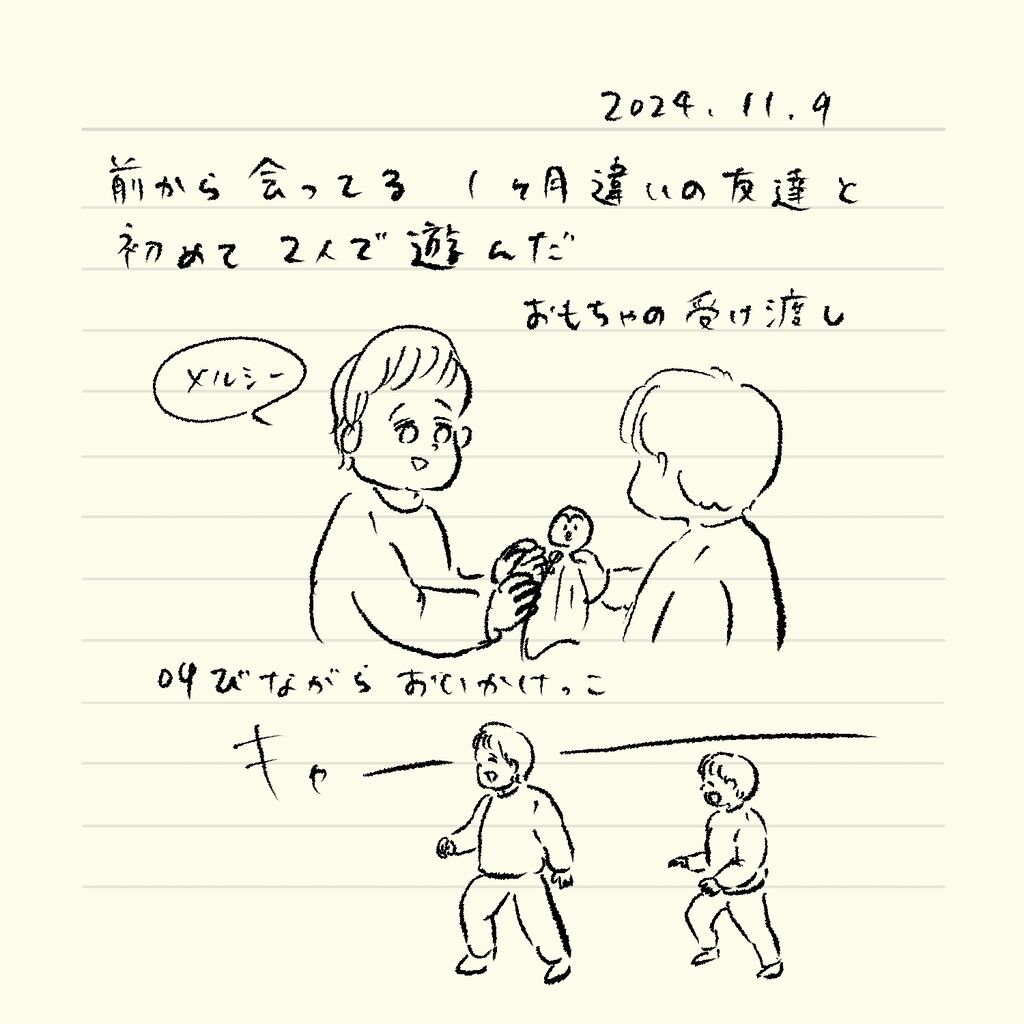 2024.11.9
前から会ってる 1ヶ月違いの友達と
初めて 2人で遊んだ
おもちゃの受け渡し
メルシー
叫びながら おいかけっこ
キャーー